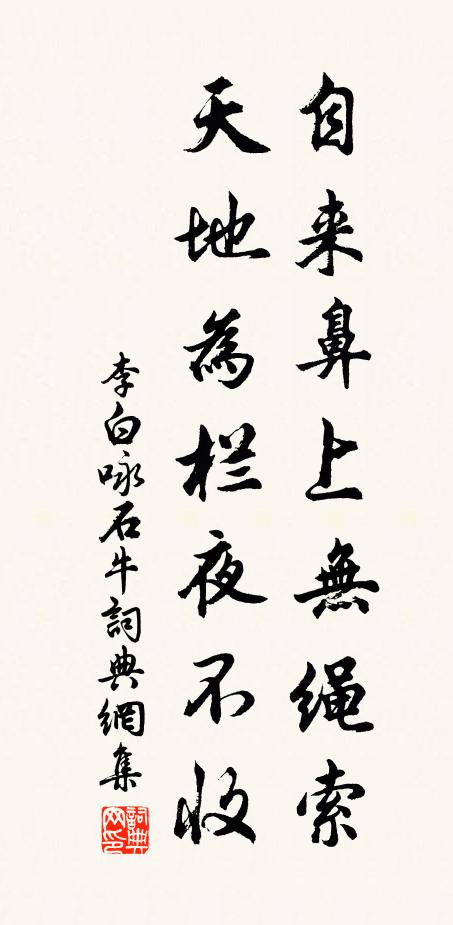 自来鼻上無绳索
天地為栏夜不收
李白咏石牛詞典網集
詞典
网印